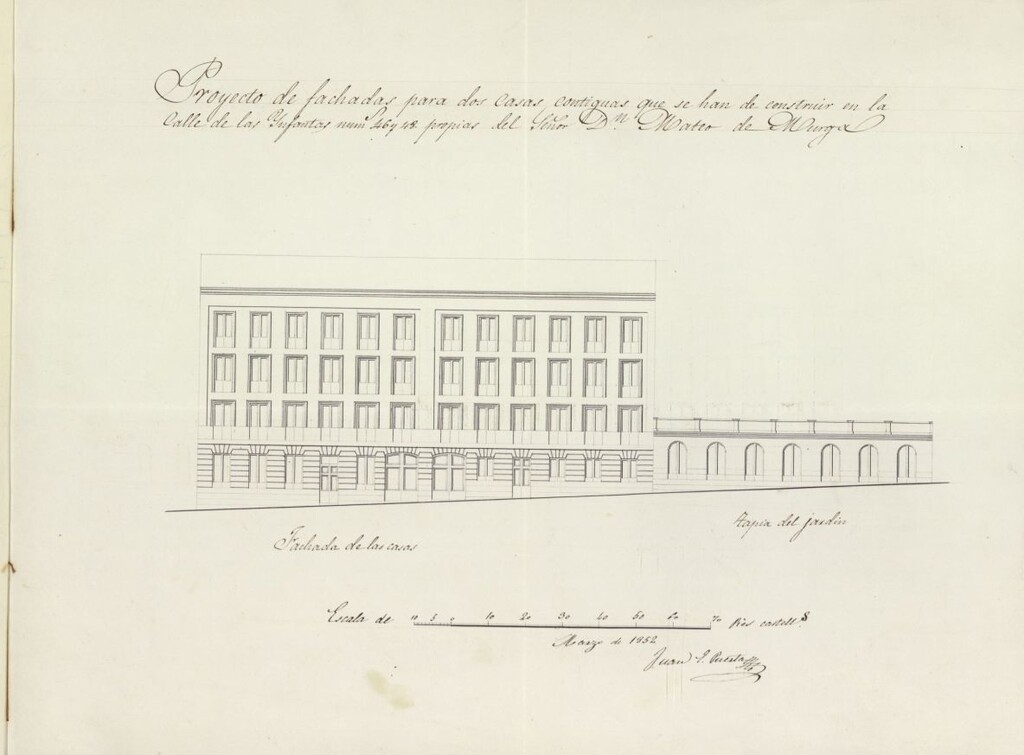 Proyecto de fachadas para dos casas contiguas que se han de construir en la
Calle de las Ynfantas num 46 y 48 propias del Señor Dn Mateo de Murga
Fachada de las casas
tapia del jardin
Escala de 10 5 0 10 20 30 40 50 60 70 Pies castells
Marzo de 1852
Juan J.